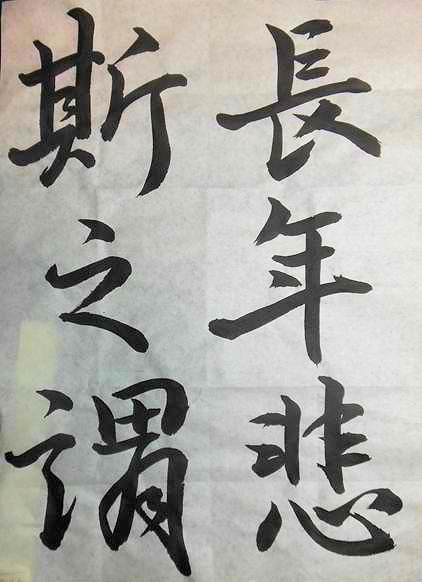 長年悲
斯之謂